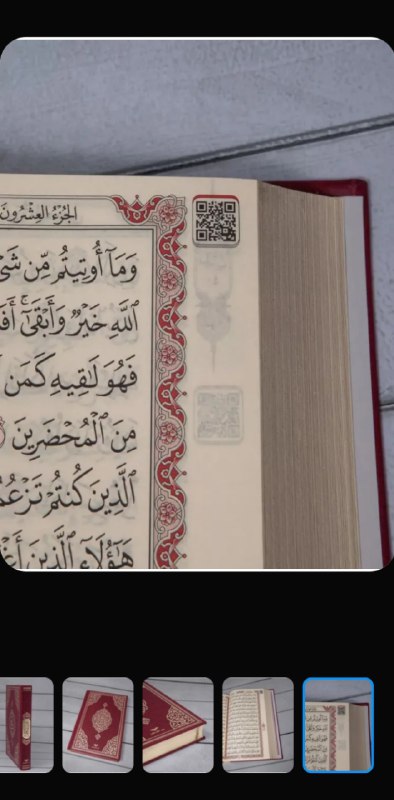 الجُزْءُ العِشْرُونَ
وَمَآ أُوتِيتُم مِّن
ٱللَّهِ خَيْرٌ وَأَبْقَىٰٓۚ
فَهُوَ لَـٰقِيهِ كَمَن
مِنَ ٱلْمُحْضَرِينَ
ٱلَّذِينَ كُنتُمْ
هَـٰٓؤُلَآءِ ٱلَّذِينَ